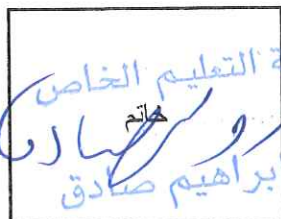 ة التعليم الخاص
خاتم
ابراهيم صادق